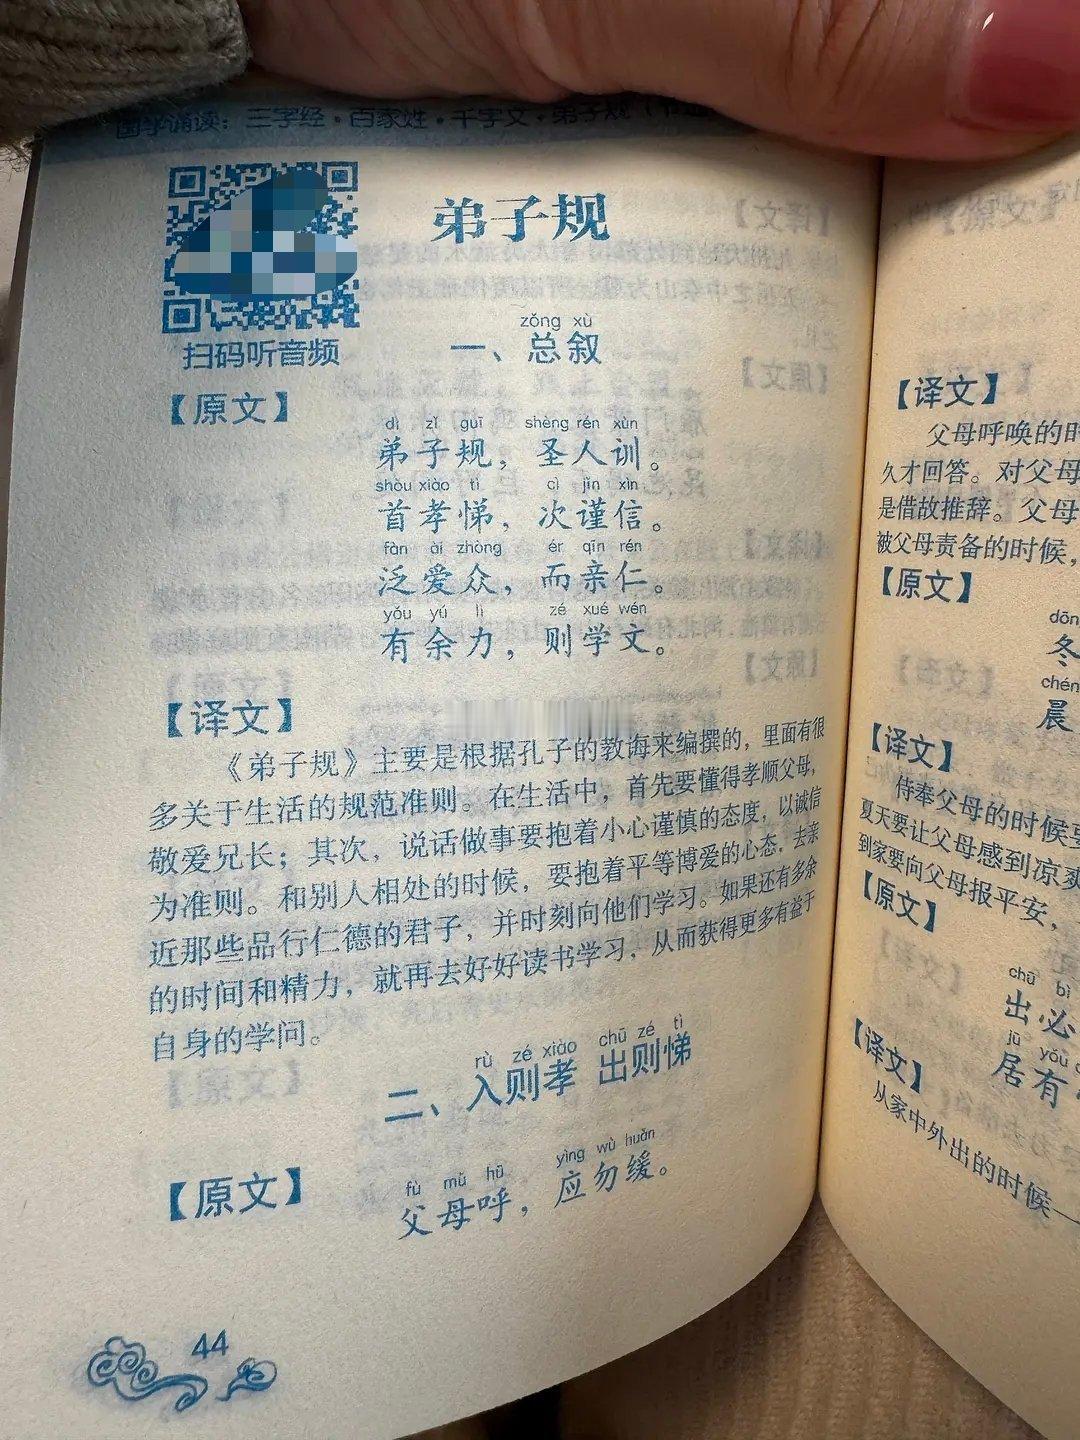 国学诵读：三字经·百家姓·千字文·弟子规
扫码听音频
弟子规
zǒng xù
一、总叙
【原文】
dì zǐ guī shèng rén xùn
弟子规，圣人训。
shǒu xiào tì cì jǐn xìn
首孝悌，次谨信。
fàn ài zhòng ér qīn rén
泛爱众，而亲仁。
yǒu yú lì zé xué wén
有余力，则学文。
【译文】
《弟子规》主要是根据孔子的教诲来编撰的，里面有很
多关于生活的规范准则。在生活中，首先要懂得孝顺父母，
敬爱兄长；其次，说话做事要抱着小心谨慎的态度，以诚信
为准则。和别人相处的时候，要抱着平等博爱的心态，去亲
近那些品行仁德的君子，并时刻向他们学习。如果还有多余
的时间和精力，就再去好好读书学习，从而获得更多有益于
自身的学问。
rù zé xiào chū zé tì
二、入则孝 出则悌
【原文】
fù mǔ hū yìng wù huǎn
父母呼，应勿缓。
44
【译文】
父母呼唤的时
久才回答。对父母
是借故推辞。父母
被父母责备的时候，
【原文】
dōn
冬
chén
晨
【译文】
侍奉父母的时候要
夏天要让父母感到凉爽
到家要向父母报平安，
【原文】
chū bì
出必
jū yǒu
居有
【译文】
从家中外出的时候一